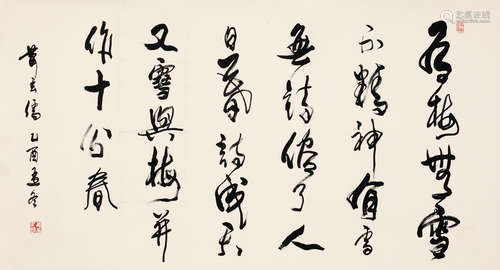 有梅無雪
不精神有雪
無詩俗了人
日暮詩成天
又雪與梅並
作十分春
乙酉孟冬